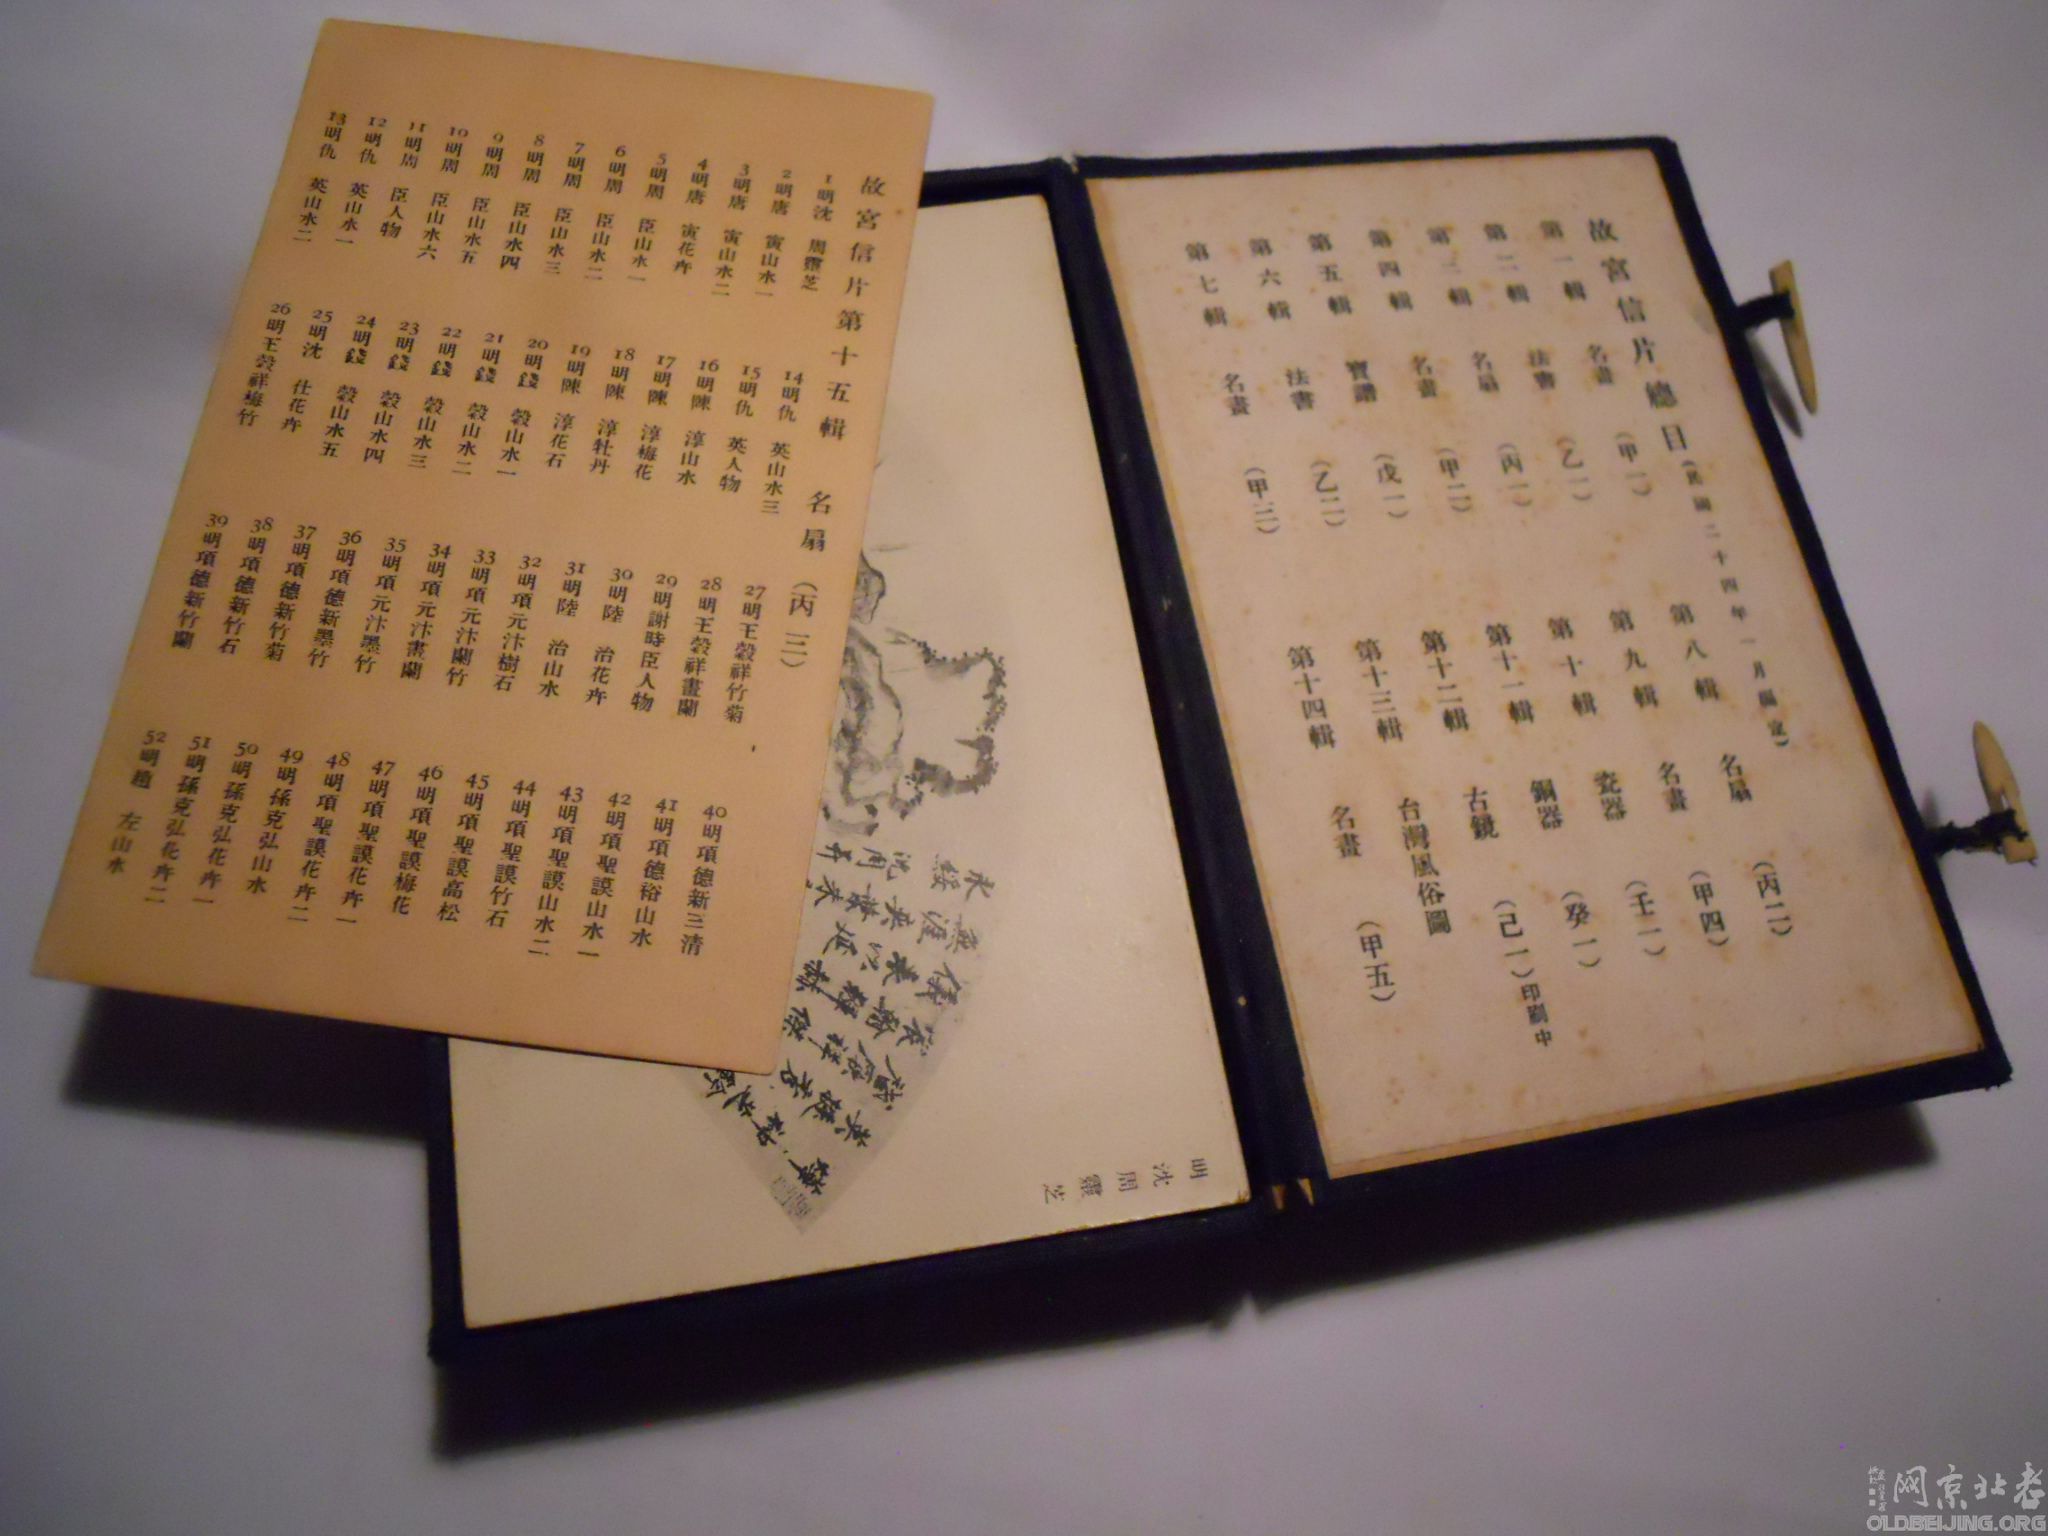 故宮信片第十五輯 名扇(丙三)
1明沈 周靈芝
2明唐 寅山水一
3明唐 寅山水二
4明唐 寅花卉
5明周 臣山水一
6明周 臣山水二
7明周 臣山水三
8明周 臣山水四
9明周 臣山水五
10明周 臣山水六
11明周 臣人物
12明仇 英山水一
13明仇 英山水二
14明仇 英山水三
15明仇 英人物
16明陳 淳山水
17明陳 淳梅花
18明陳 淳牡丹
19明陳 淳花石
20明錢 穀山水一
21明錢 穀山水二
22明錢 穀山水三
23明錢 穀山水四
24明錢 穀山水五
25明沈 仕花卉
26明王穀祥梅竹
27明王穀祥竹菊
28明王穀祥畫蘭
29明謝時臣人物
30明陸 治花卉
31明陸 治山水
32明項元汴樹石
33明項元汴蘭竹
34明項元汴畫蘭
35明項元汴墨竹
36明項德新墨竹
37明項德新竹菊
38明項德新竹石
39明項德新竹蘭
40明項德新三清
41明項德裕山水
42明項聖謨山水一
43明項聖謨山水二
44明項聖謨竹石
45明項聖謨高松
46明項聖謨梅花
47明項聖謨花卉一
48明項聖謨花卉二
49明孫克弘山水
50明孫克弘花卉一
51明孫克弘花卉二
52明趙 左山水
明沈周靈芝
故宮信片總目(民國二十四年一月編定)
第一輯 名畫 (甲一)
第二輯 法書 (乙一)
第三輯 名扇 (丙一)
第四輯 名畫 (甲二)
第五輯 寶譜 (戊一)
第六輯 法書 (乙二)
第七輯 名畫 (甲三)
第八輯 名扇 (丙二)
第九輯 名畫 (甲四)
第十輯 瓷器 (壬一)
第十一輯 銅器 (癸一)
第十二輯 古鏡 (己一)印刷中
第十三輯 台灣風俗圖
第十四輯 名畫 (甲五)
老北京网
OLDBEIJING.ORG